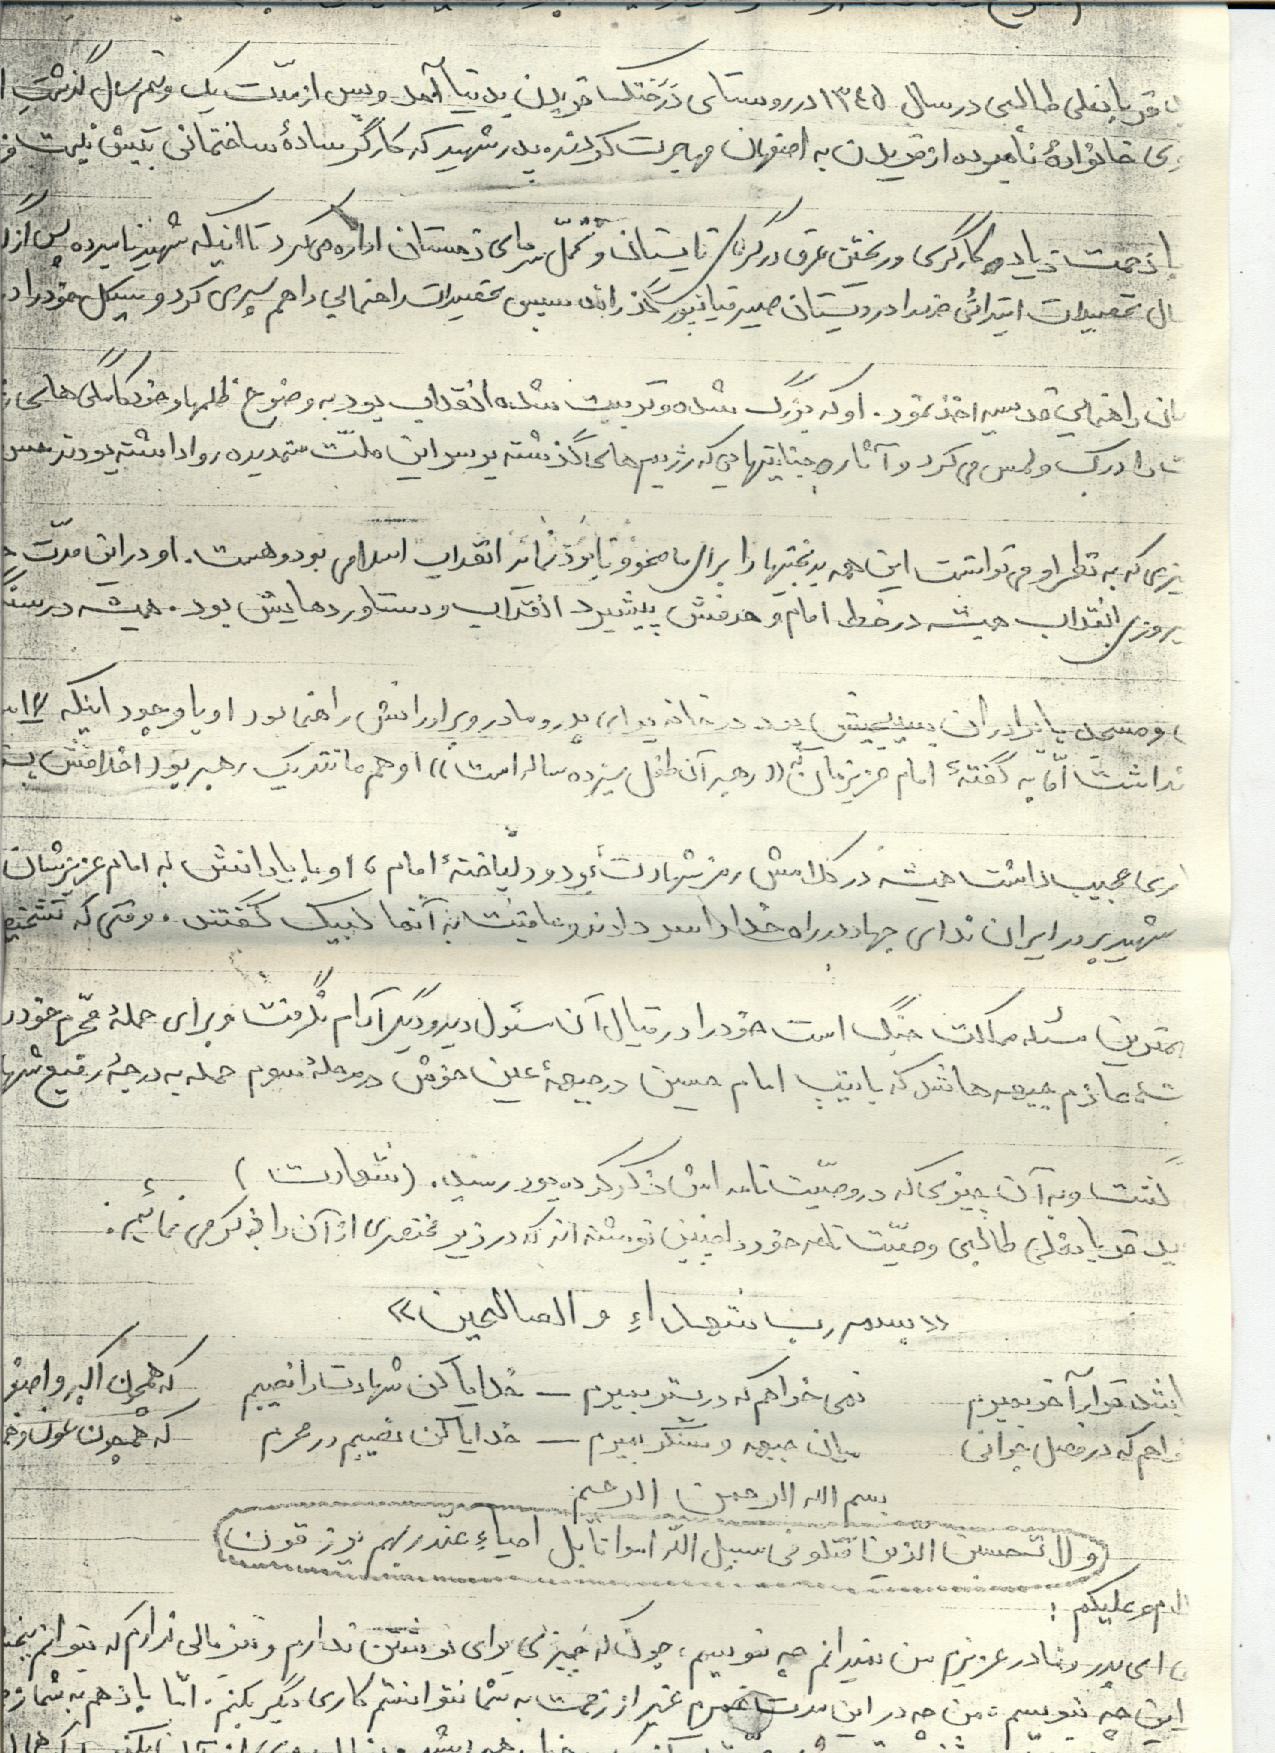 قربانعلی طالبی در سال ۱۳٤۵ در روستای درختک فریدن بدنیا آمد و پس از مدّت یک و نیم سال گذشت
خانوادهٔ نامبرده از فریدن به اصفهان مهاجرت کردند پدر شهید که کارگر سادهٔ ساختمانی بیش نیست
با زحمت زیاد و کارگری و ریختن عرق در گرمای تابستان و تحمّل سرمای زمستان اداره می کرد تا اینکه شهید نامبرده پس از
تحصیلات ابتدائی خود را در دبستان گذراند سپس تحصیلات راهنمایی را هم سپری کرد و سیکل خود را
راهنمایی قدسیه اخذ نمود. او که بزرگ شده و تربیت شده انقلاب بود به وضوح ظلمها و خودکامگی های
را درک و لمس می کرد و آثار و جنایتهایی که رژیم های گذشته بر سر این ملّت ستمدیده روا داشته بودند
که به نظر او می توانست این همه بدبختیها را برای ما محو و نابود نماید انقلاب اسلامی بود و هست. او در این مدّت
انقلاب همیشه در خط امام و هدفش پیشبرد انقلاب و دستاوردهایش بود. همیشه در
و مسجد با برادران بسیجیش بود در خانه برای پدر و مادر و برادرانش راهنما بود او با وجود اینکه ۱۷
نداشت امّا به گفتهٔ امام عزیزمان که «رهبر آن طفل سیزده ساله است» او هم مانند یک رهبر بود اخلاقش
عجیب داشت همیشه در کلامش رمز شهادت بود و دلباختهٔ امام، او با یارانش به امام عزیزشان
شهید پرور ایران ندای جهاد در راه خدا را سر دادند و عاقبت به آنها لبیک گفتند. وقتی که
مسئله مملکت جنگ است خود را در قبال آن مسئول دید و دیگر آرام نگرفت و برای حملهٔ محرّم خود
عازم جبهه ها شد که با تیپ امام حسین در جبههٔ عین خوش در مرحلهٔ سوم حمله به درجهٔ رفیع
گشت و به آن چیزی که در وصیّت نامه اش ذکر کرده بود رسید. (شهادت)
طالبی وصیّت نامه خود را چنین نوشته اند که در زیر مختصری از آن را ذکر می نمائیم:
«بسم رب شهداء و الصالحین»
قرار آخر بمیرم نمی خواهم که در بستر بمیرم — خدایا کن شهادت را نصیبم که همچون اکبر و اصغر
که در فصل جوانی میان جبهه و سنگر بمیرم — خدایا کن نصیبم در محرم که همچون عون و
بسم الله الرحمن الرحیم
(ولا تحسبن الذین قتلو فی سبیل اللّه امواتا بل احیاءِ عند ربهم یرزقون)
علیکم:
ای پدر و مادر عزیزم من نمیدانم چه بنویسم، چون که چیزی برای نوشتن ندارم و نیز مالی ندارم که بتوانم
این چه بنویسم، من چه در این مدت عمرم غیر از زحمت به شما نتوانستم کاری دیگر بکنم. امّا باز هم به شما